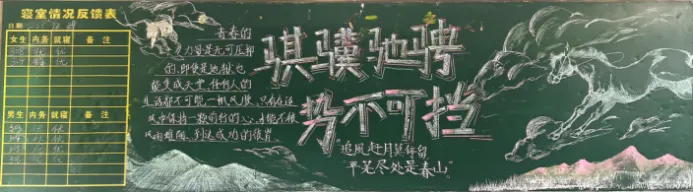 寝室情况反馈表
日期
女生 内务 就寝 备注
优
优
男生 内务 就寝 备注
优
优
优
青春的
力量是无可压抑
的,即使是地狱也
能变成天堂,任何人的
生活都不可能一帆风顺,只有在逆
风中保持一颗前行的心,才能不被
风雨难阻,到达成功的彼岸
骐骥驰骋
势不可挡
追风赶月莫停留
"平芜尽处是春山"